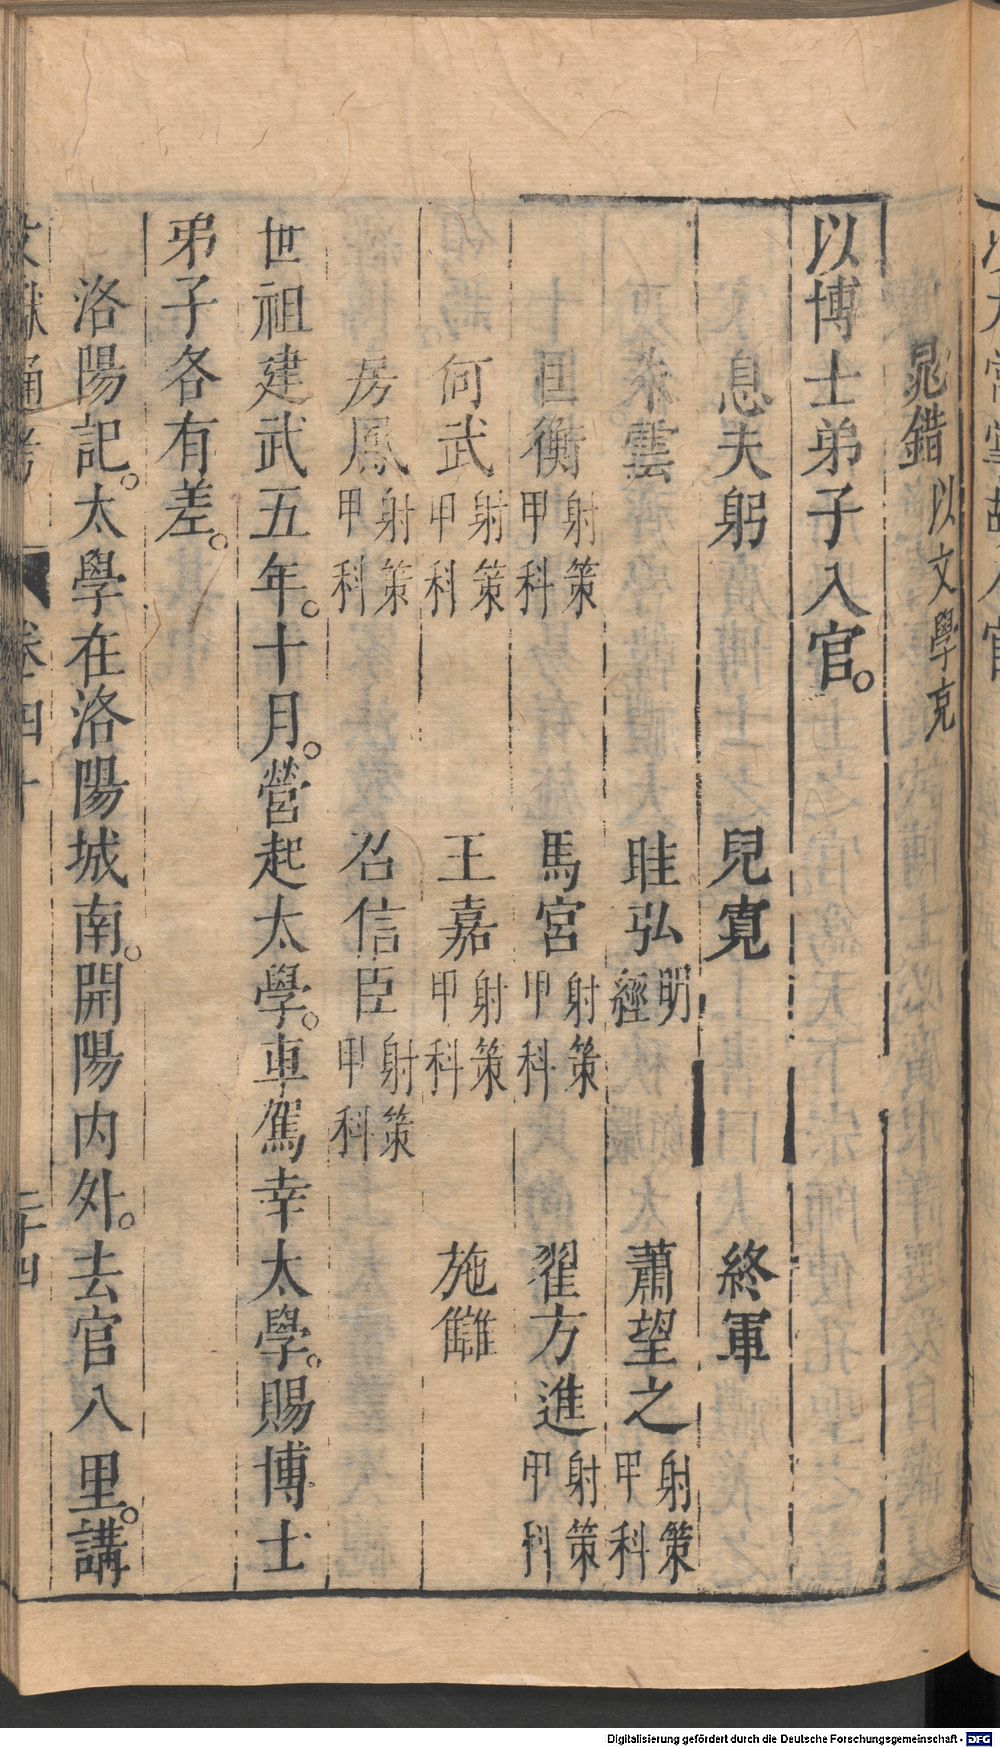 晁錯以文學充
以博士弟子入官。
息夫躬　兒寛　終軍
朱雲　眭弘明經　蕭望之射策甲科
匡衡射策甲科　馬宮射策甲科　翟方進射策甲科
何武射策甲科　王嘉射策甲科　施讎
房鳳射策甲科　召信臣射策甲科
世祖建武五年。十月。營起太學。車駕幸太學。賜博士
弟子各有差。
洛陽記。太學在洛陽城南。開陽内外。去官八里。講
文獻通考　卷四十　二十四
Digitalisierung gefördert durch die Deutsche Forschungsgemeinschaft - DFG